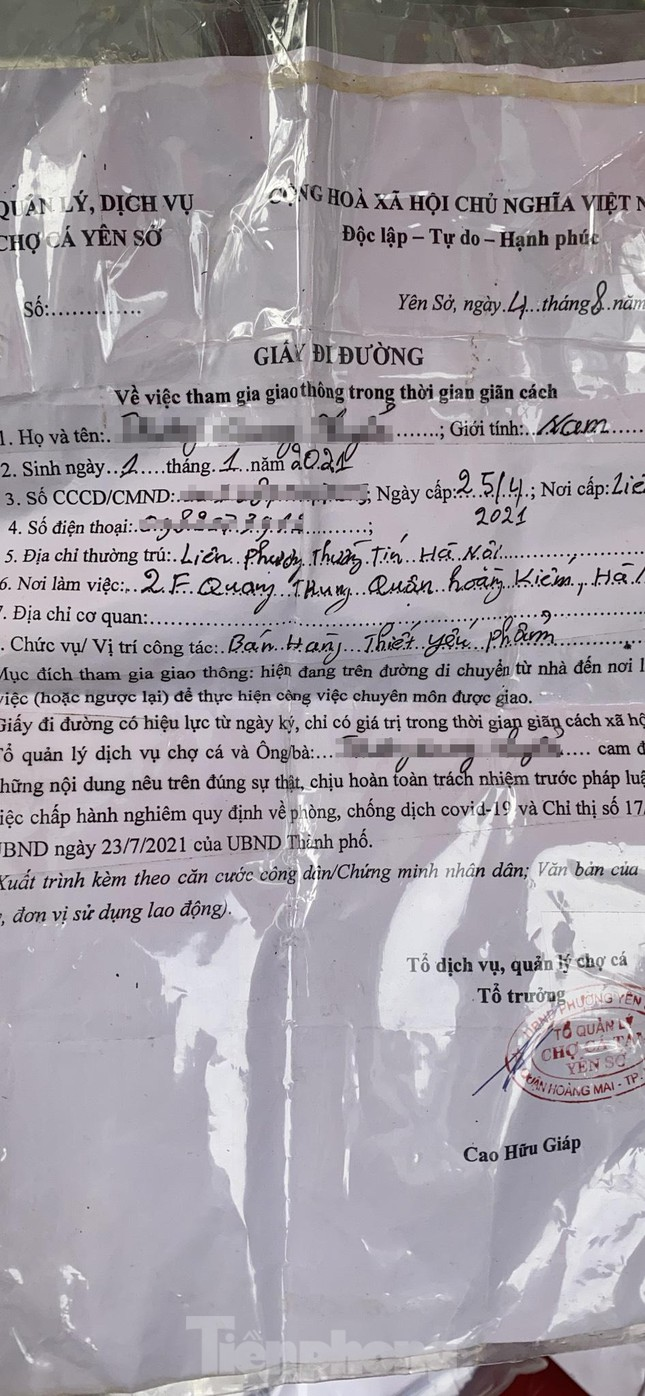 QUẢN LÝ, DỊCH VỤ
CHỢ CÁ YÊN SỞ
CỘNG HOÀ XÃ HỘI CHỦ NGHĨA VIỆT N
Độc lập – Tự do – Hạnh phúc
Số:..............
Yên Sở, ngày.4...tháng 8.năm
GIẤY ĐI ĐƯỜNG
Về việc tham gia giao thông trong thời gian giãn cách
1. Họ và tên:. .......; Giới tính:..Nam......
2. Sinh ngày..1....tháng.1.năm 2021
3. Số CCCD/CMND: ; Ngày cấp:25/4.; Nơi cấp:
2021
4. Số điện thoại: ...........;
5. Địa chỉ thường trú:.Liên.phương.Thường Tín.Hà Nội.........;......
6. Nơi làm việc:..2.F.Quang.Trung.Quân hoàng Kiếm, Hà
. Địa chỉ cơ quan:..........................................................
. Chức vụ/ Vị trí công tác:.Bán Hàng..Thiết yếu phẩm............
Mục đích tham gia giao thông: hiện đang trên đường di chuyển từ nhà đến nơi l
việc (hoặc ngược lại) để thực hiện công việc chuyên môn được giao.
Giấy đi đường có hiệu lực từ ngày ký, chỉ có giá trị trong thời gian giãn cách xã hộ
Tổ quản lý dịch vụ chợ cá và Ông/bà:... .... cam đ
những nội dung nêu trên đúng sự thật, chịu hoàn toàn trách nhiệm trước pháp luậ
iệc chấp hành nghiêm quy định về phòng, chống dịch covid-19 và Chỉ thị số 17/
UBND ngày 23/7/2021 của UBND Thành phố.
Xuất trình kèm theo căn cước công dân/Chứng minh nhân dân; Văn bản của
, đơn vị sử dụng lao động).
Tổ dịch vụ, quản lý chợ cá
Tổ trưởng
UBND PHƯỜNG YÊN
TỔ QUẢN LÝ
CHỢ CÁ
YÊN SỞ
QUẬN HOÀNG MAI - TP.
Cao Hữu Giáp
Tiền phong